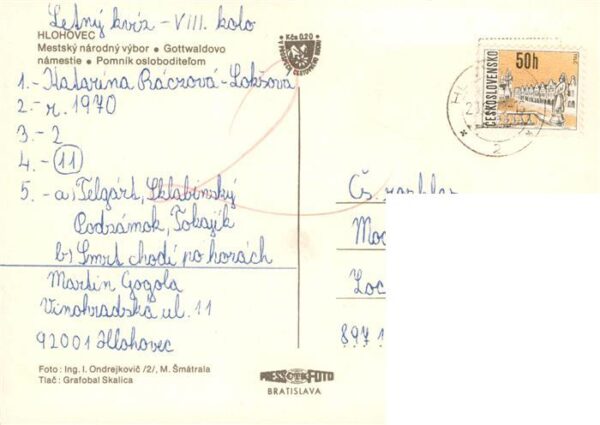 Letný kvíz - VIII. kolo
HLOHOVEC
Mestský národný výbor • Gottwaldovo
námestie • Pomník osloboditeľom
Kčs 0,20
1.- Katarína Ráczová-Lokšová
2.- r. 1970
3.- 2
4.- 11
5.- a) Telgárt, Sklabinský
Podzámok, Tokajík
b) Smrt chodí po horách
Martin Gogola
Vinohradská ul. 11
92001 Hlohovec
Foto: Ing. I. Ondrejkovič /2/, M. Šmátrala
Tlač: Grafobal Skalica
PRESSFOTO
ČTK
BRATISLAVA
50h
ČESKOSLOVENSKO
2
Čs.
Moc
Loc
897 1